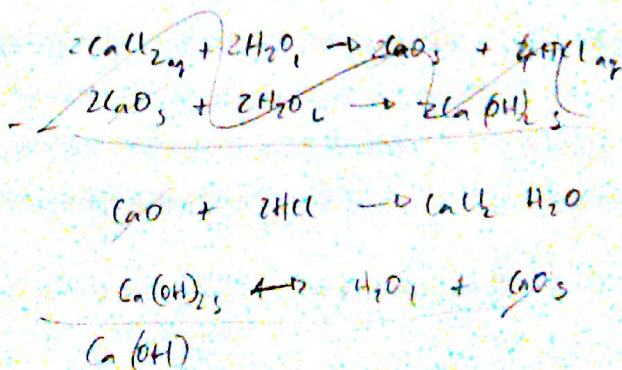 2CaCl₂ aq + 2H₂O l → 2CaO s + 4HCl aq
2CaO s + 2H₂O L → 2Ca(OH)₂ s
CaO + 2HCl → CaCl₂ H₂O
Ca(OH)₂ s ↔ H₂O l + CaO s
Ca(OH)